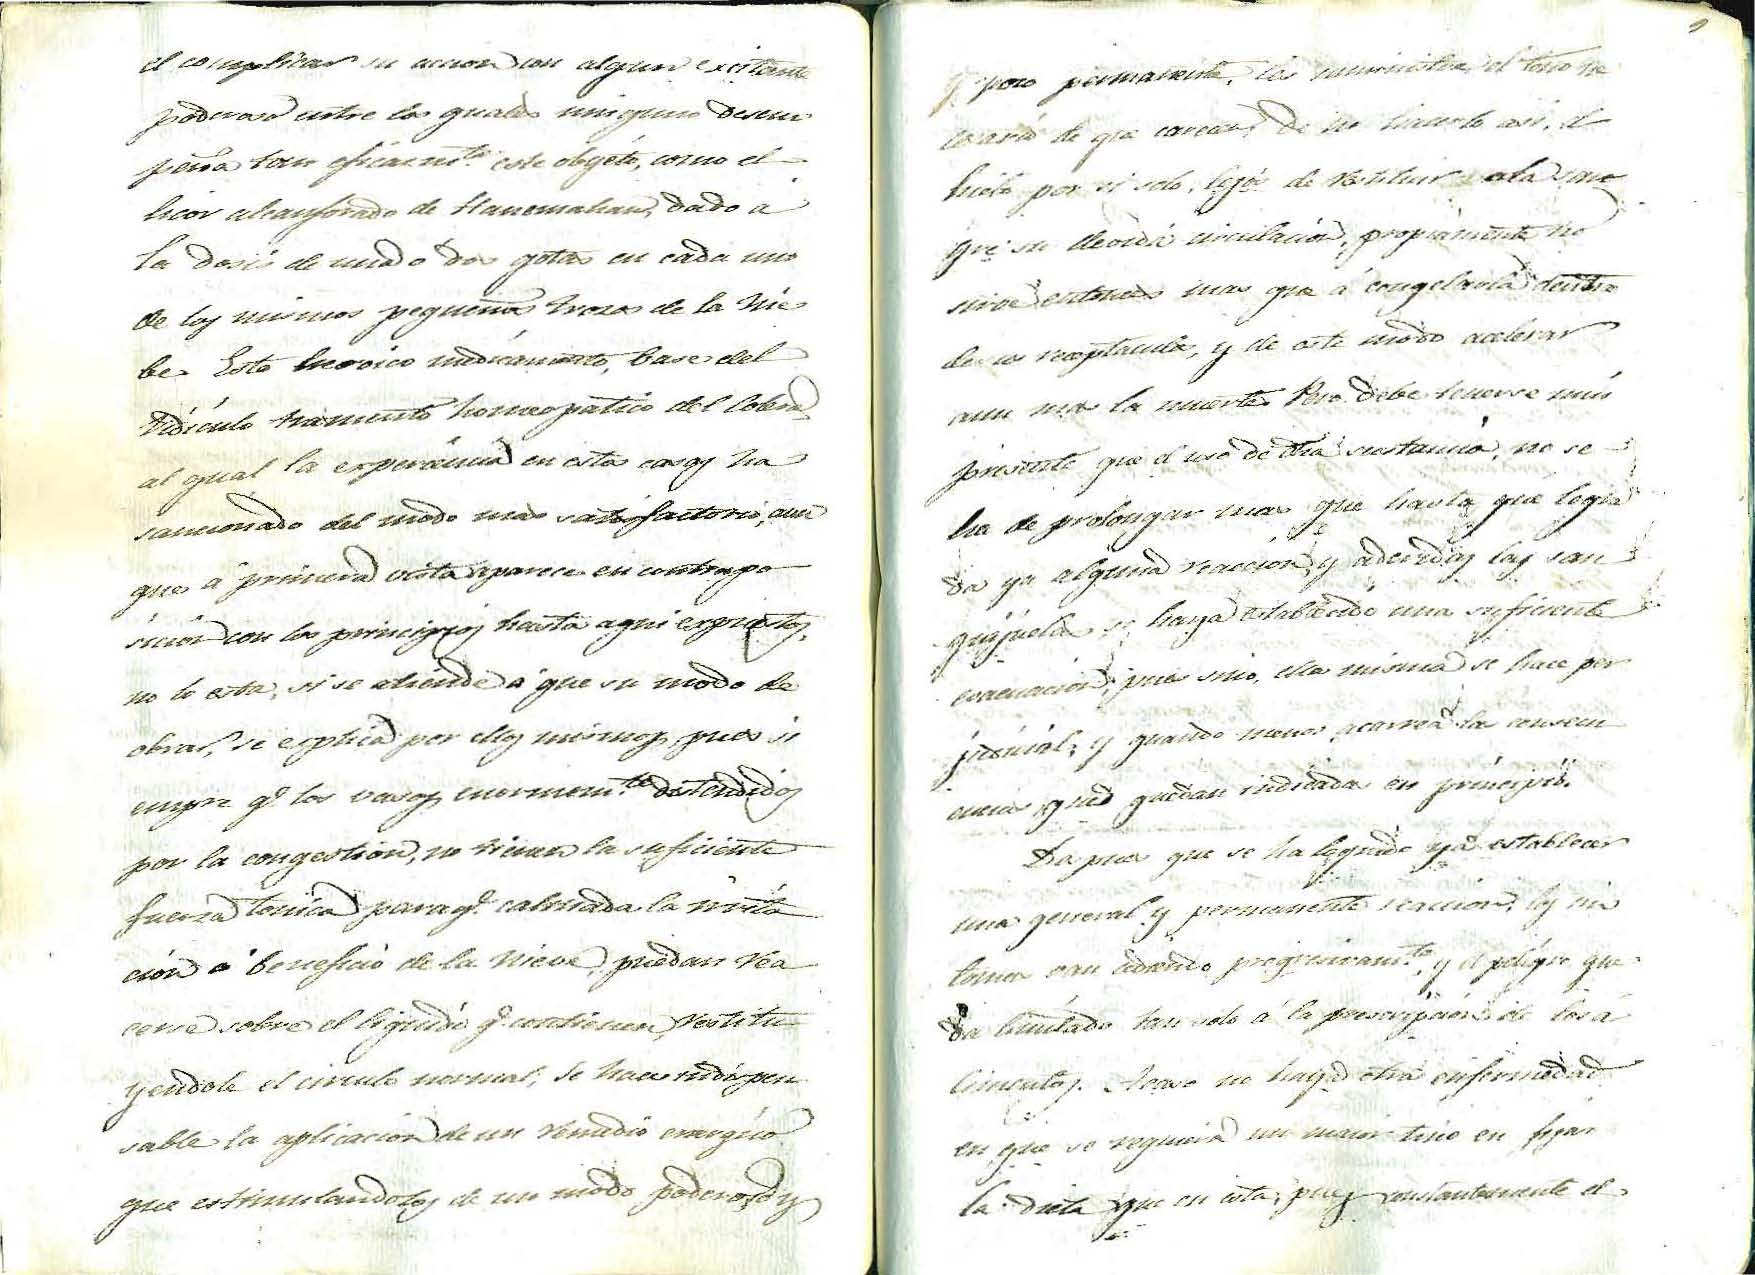 el complicar su accion con algun exitante
poderoso entre los quales ninguno desem
peña tan eficazmte. este objeto, como el
licor alcanforado de Hanemahan, dado a
la dosis de una o dos gotas en cada uno
de los mismos pequeños trozos de la Nie
be. Este heroico medicamento, base del
ridiculo tratamiento homeopatico del Colera,
al qual la experiencia en estos casos ha
sancionado del modo mas satisfactorio, aun
que á primera vista aparece en contrapo
sición con los principios hasta aqui expuestos,
no lo esta, si se atiende a que su modo de
obrar, se explica por ellos mismos, pues si
empre qe. los vasos enormemte. distendidos
por la congestion, no tienen la suficiente
fuerza tonica para qe. calmada la irrita
ción a beneficio de la Nieve, puedan rea
cerse sobre el liquido qe. contienen, restitu
yendole el circulo normal, se hace indispen
sable la aplicacion de un remedio energico
que estimulandolos de un modo poderoso y
9
poco permanente, les suministre el tono ne
cesario de que carecen, de no hacerlo asi, el
hielo por si solo, lejos de restituir a la san
gre su devida circulación, propiamente no
sirve entonces mas que á congelarla dentro
de sus receptaculos, y de este modo acelerar
aun mas la muerte. Pero debe tenerse mui
presente que el uso de dha sustancia, no se
ha de prolongar mas que hasta que logra
da ya alguna reaccion, y adheridas las san
guijuelas se haya establecido una suficiente
evacuacion, pues sino, ella misma se hace per
judicial, y quando menos acarrea la consecu
encias que quedan indicadas en principio.
Ya pues que se ha logrado ya establecer
una general y permanente reaccion, los sin
tomas van cediendo progresivamte., y el peligro que
da limitado tan solo á la prescripción de los a
limentos. Acaso no haya otra enfermedad
en que se requiera un maior tino en fijar
la dieta que en esta, pues constantemente el